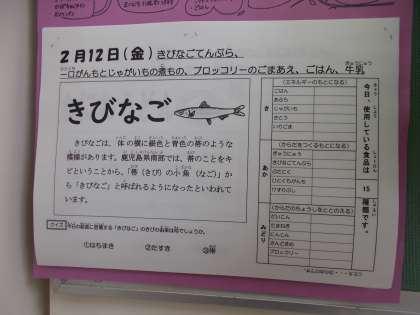 2月12日(金) きびなごてんぷら、
一口がんもとじゃがいもの煮もの、ブロッコリーのごまあえ、ごはん、牛乳
きびなご
きびなごは、体の横に銀色と青色の帯のような
模様があります。鹿児島県南部では、帯のことをキ
ビということから、「帯(きび)の小魚(なご)」か
ら「きびなご」と呼ばれるようになったといわれて
います。
クイズ
今日の給食に登場する「きびなご」のきびの由来は何でしょうか。
①はちまき ②たすき ③帯
今日、使用している食品は 15 種類です。
き
(エネルギーのもとになる)
ごはん
あぶら
じゃがいも
さとう
いりごま
あか
(からだをつくるもとになる)
ぎゅうにゅう
きびなごてんぷら
ぶたにく
ひとくちがんも
けずりぶし
みどり
(からだのちょうしをととのえる)
だいこん
たまねぎ
にんじん
さやいんげん
ブロッコリー